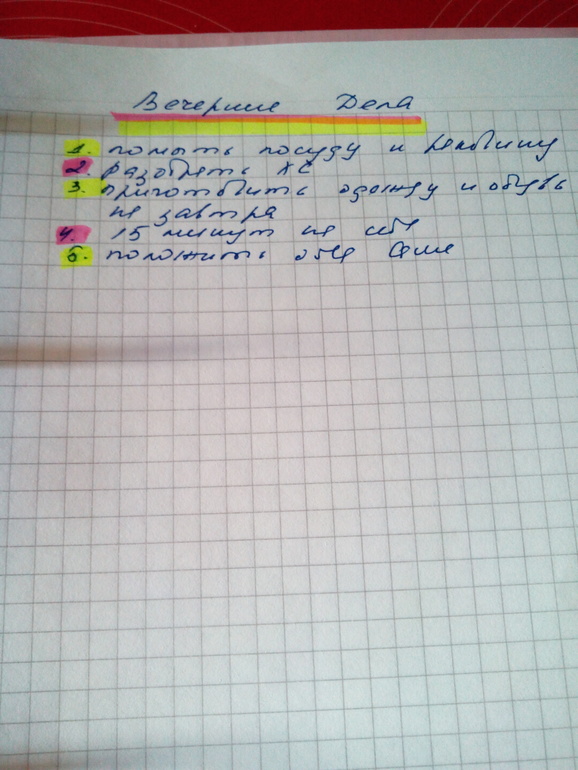 Вечерние Дела
1. помыть посуду и раковину
2. разобрать ХС
3. приготовить одежду и обувь
на завтра
4. 15 минут на себя
5. положить